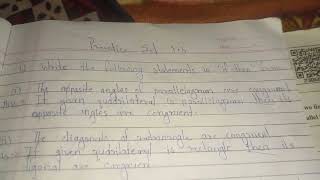 Practice Set 3.3
1) Write the following statements in 'if-then' form
i) The opposite angles of parallelogram are congruent
If given quadrilateral is parallelogram then its
opposite angles are congruent.
The diagonals of rectangle are congruent
If given quadrilateral is rectangle then its
are congruent